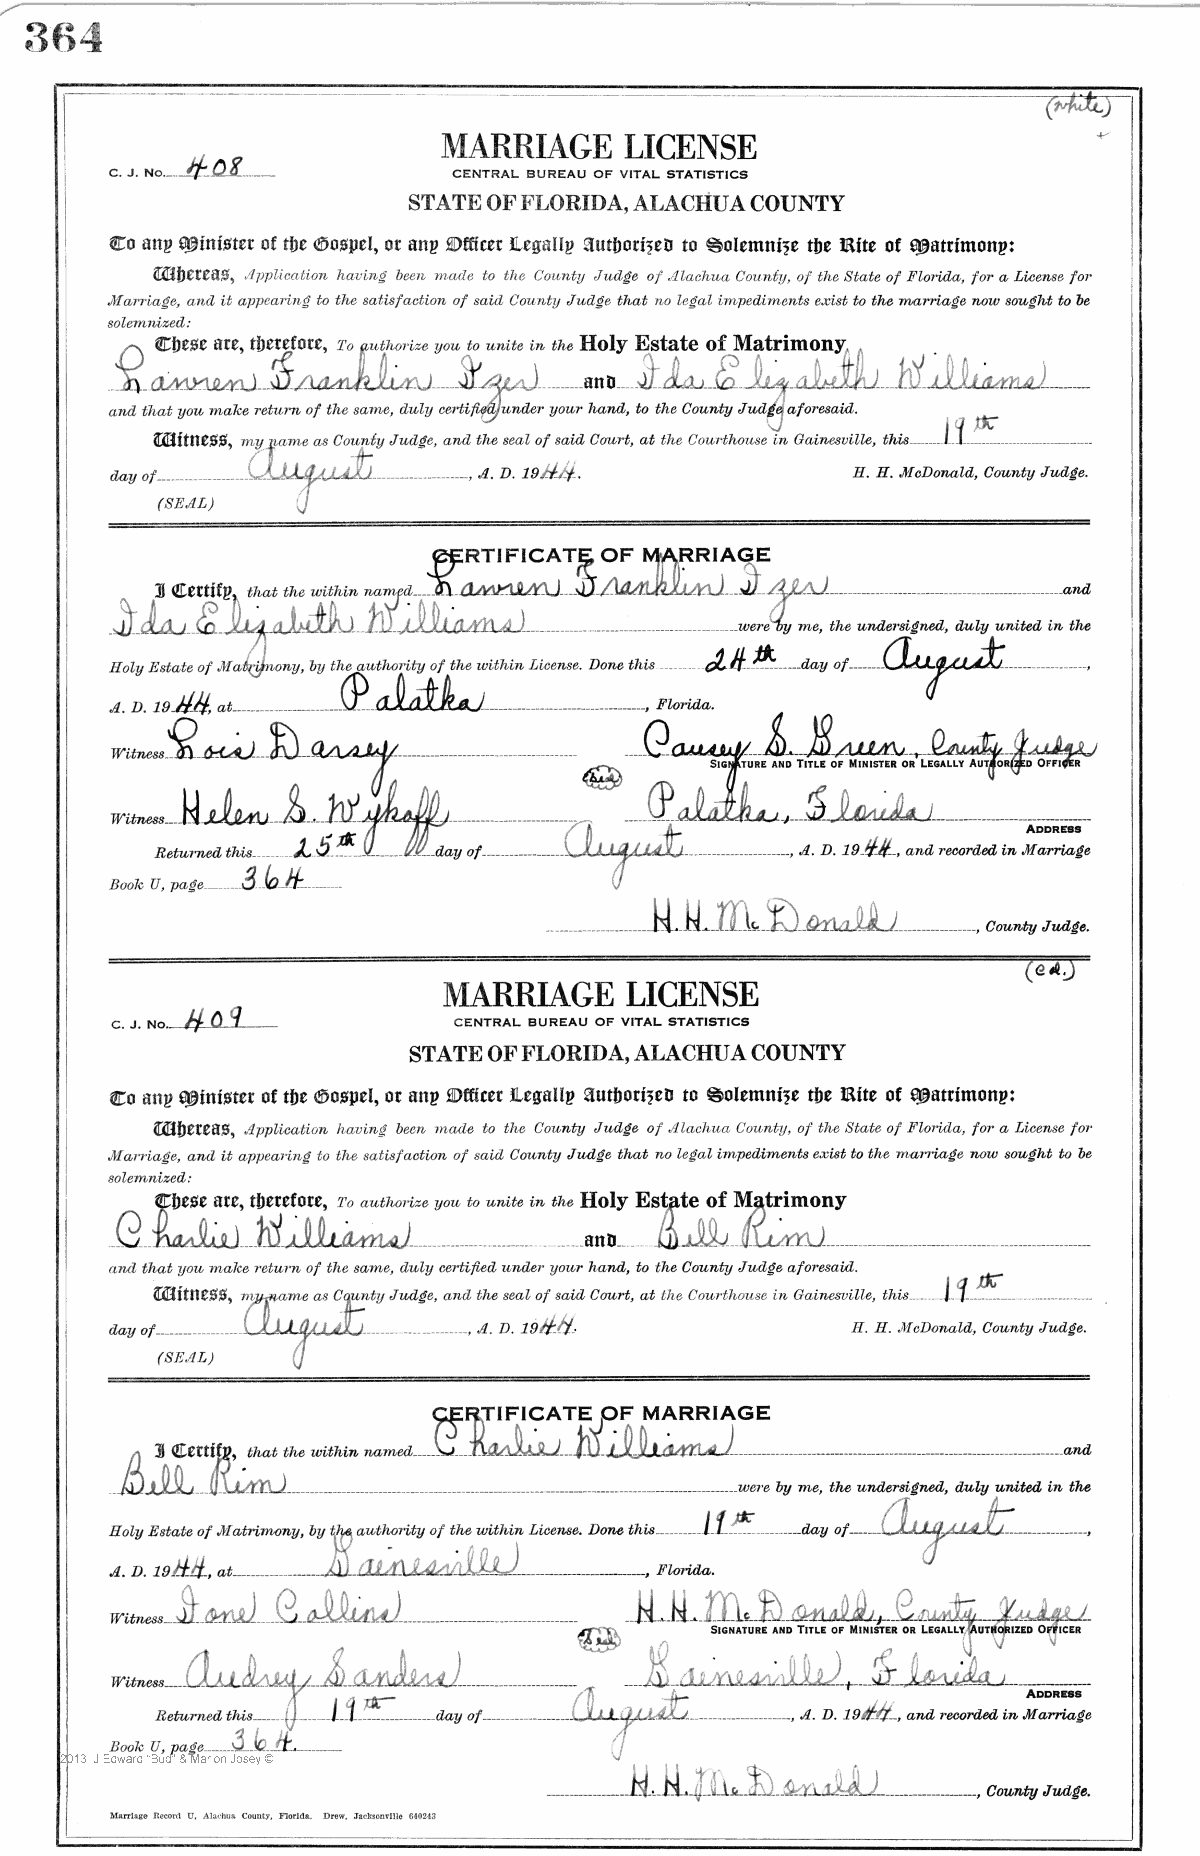 364
(white)
MARRIAGE LICENSE
C. J. No. 408
CENTRAL BUREAU OF VITAL STATISTICS
STATE OF FLORIDA, ALACHUA COUNTY
To any Minister of the Gospel, or any Officer Legally Authorized to Solemnize the Rite of Matrimony:
Whereas, Application having been made to the County Judge of Alachua County, of the State of Florida, for a License for
Marriage, and it appearing to the satisfaction of said County Judge that no legal impediments exist to the marriage now sought to be
solemnized:
These are, therefore, To authorize you to unite in the Holy Estate of Matrimony
Lawren Franklin Izer and Ida Elizabeth Williams
and that you make return of the same, duly certified under your hand, to the County Judge aforesaid.
Witness, my name as County Judge, and the seal of said Court, at the Courthouse in Gainesville, this 19th
day of August, A. D. 1944. H. H. McDonald, County Judge.
(SEAL)
CERTIFICATE OF MARRIAGE
I Certify, that the within named Lawren Franklin Izer and
Ida Elizabeth Williams were by me, the undersigned, duly united in the
Holy Estate of Matrimony, by the authority of the within License. Done this 24th day of August,
A. D. 1944, at Palatka, Florida.
Witness Lois Darsey Causey S. Green, County Judge
SIGNATURE AND TITLE OF MINISTER OR LEGALLY AUTHORIZED OFFICER
Seal
Witness Helen S. Wykoff Palatka, Florida
ADDRESS
Returned this 25th day of August, A. D. 1944, and recorded in Marriage
Book U, page 364
H. H. McDonald, County Judge.
(Cd.)
MARRIAGE LICENSE
C. J. No. 409
CENTRAL BUREAU OF VITAL STATISTICS
STATE OF FLORIDA, ALACHUA COUNTY
To any Minister of the Gospel, or any Officer Legally Authorized to Solemnize the Rite of Matrimony:
Whereas, Application having been made to the County Judge of Alachua County, of the State of Florida, for a License for
Marriage, and it appearing to the satisfaction of said County Judge that no legal impediments exist to the marriage now sought to be
solemnized:
These are, therefore, To authorize you to unite in the Holy Estate of Matrimony
Charlie Williams and Bell Rim
and that you make return of the same, duly certified under your hand, to the County Judge aforesaid.
Witness, my name as County Judge, and the seal of said Court, at the Courthouse in Gainesville, this 19th
day of August, A. D. 1944. H. H. McDonald, County Judge.
(SEAL)
CERTIFICATE OF MARRIAGE
I Certify, that the within named Charlie Williams and
Bell Rim were by me, the undersigned, duly united in the
Holy Estate of Matrimony, by the authority of the within License. Done this 19th day of August,
A. D. 1944, at Gainesville, Florida.
Witness Ione Collins H. H. McDonald, County Judge
SIGNATURE AND TITLE OF MINISTER OR LEGALLY AUTHORIZED OFFICER
Seal
Witness Audrey Sanders Gainesville, Florida
ADDRESS
Returned this 19th day of August, A. D. 1944, and recorded in Marriage
Book U, page 364.
2013 J Edward "Bud" & Marion Josey ©
H. H. McDonald, County Judge.
Marriage Record U, Alachua County, Florida. Drew, Jacksonville 640243